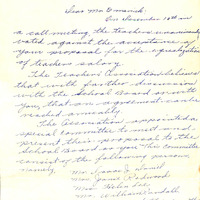 Dear Mr.
On December 19th in
a call meeting the teachers unanimously
voted against the acceptance of
your proposal for the equalization
of teachers salary.
The Teachers Association believes
that with further discussion
with the School Board or with
you, that an agreement can be
reached amicably.
The Association appointed a
special committee to meet and
present their proposal to the
School Board or you. This Committee
consist of the following persons,
namely,
Mr. James
Mrs. Jane
Mrs. Helen Lee
Mr. William